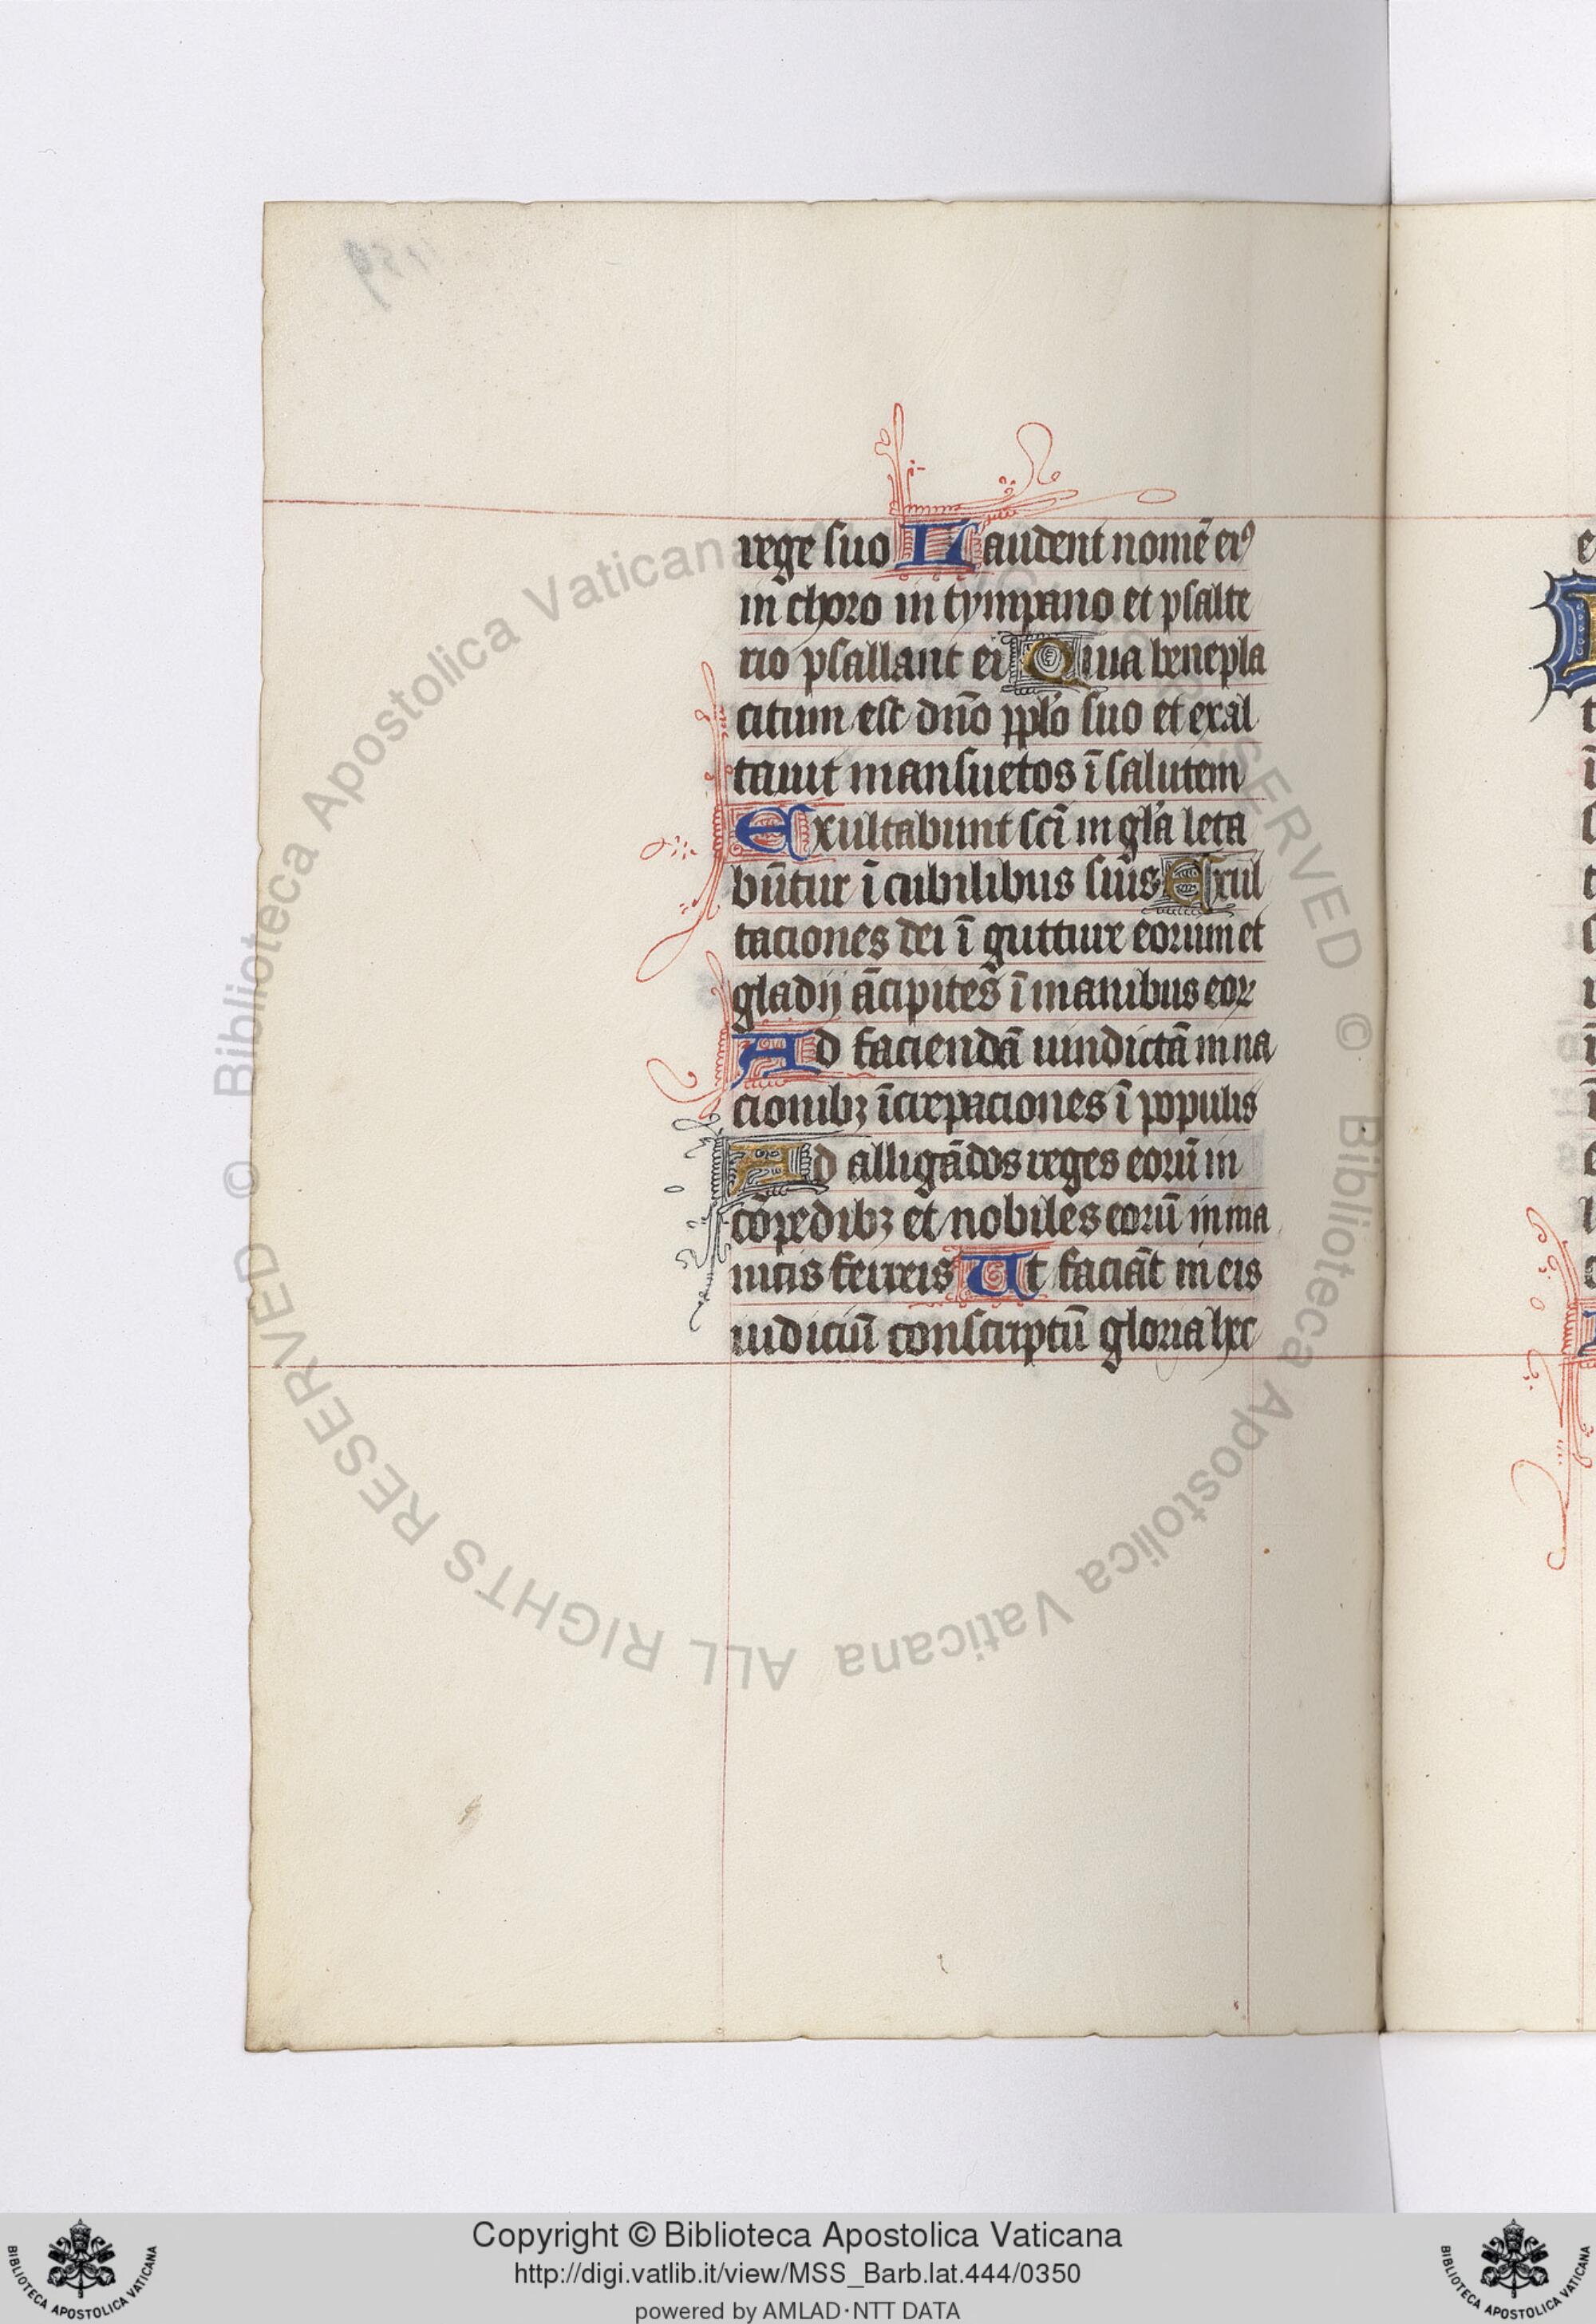 rege suo Laudent nomē ei⁹
in choro in tympano et psalte
rio psallant ei Quia benepla
citum est dn̄o ppl̄o suo et exal
tauit mansuetos ī salutem
Exultabunt sc̄i in gl̄a leta
būtur ī cubilibus suis Exul
taciones dei ī gutture eorum et
gladij ācipites ī manibus eoꝝ
Ad faciendā uindictā in na
cionibꝫ īcrepaciones ī populis
Ad alligādos reges eorū in
cōpedibꝫ et nobiles eorū in ma
nicis ferreis Ut faciāt in eis
iudiciū conscriptū gloria hec
© Biblioteca Apostolica Vaticana ALL RIGHTS RESERVED © Biblioteca Apostolica Vaticana ALL RIGHTS RESERVED
Copyright © Biblioteca Apostolica Vaticana
http://digi.vatlib.it/view/MSS_Barb.lat.444/0350
powered by AMLAD·NTT DATA
BIBLIOTECA APOSTOLICA VATICANA
BIBLIOTECA APOSTOLICA VATICANA